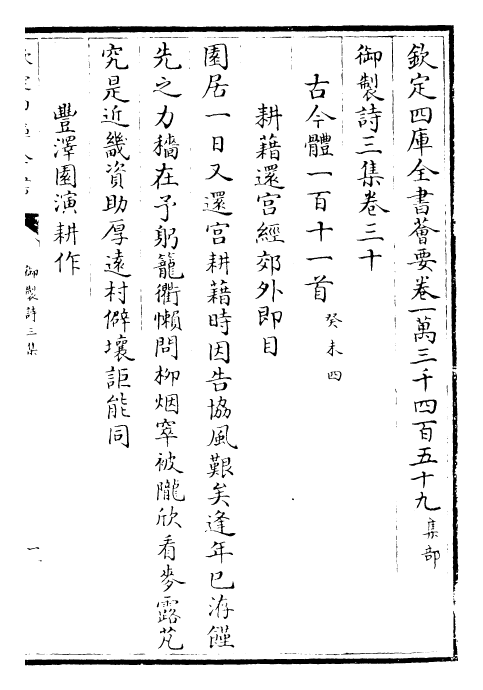 欽定四庫全書薈要卷一萬三千四百五十九 集部
御製詩三集卷三十
古今體一百十一首 癸未四
耕藉還宫經郊外即目
園居一日又還宫耕藉時因告協風艱矣逢年已洊饉
先之力穡在予躬籠衢懶問柳烟窣被隴欣看麥露芃
究是近畿資助厚遠村僻壤詎能同
豐澤園演耕作
御製詩三集
一